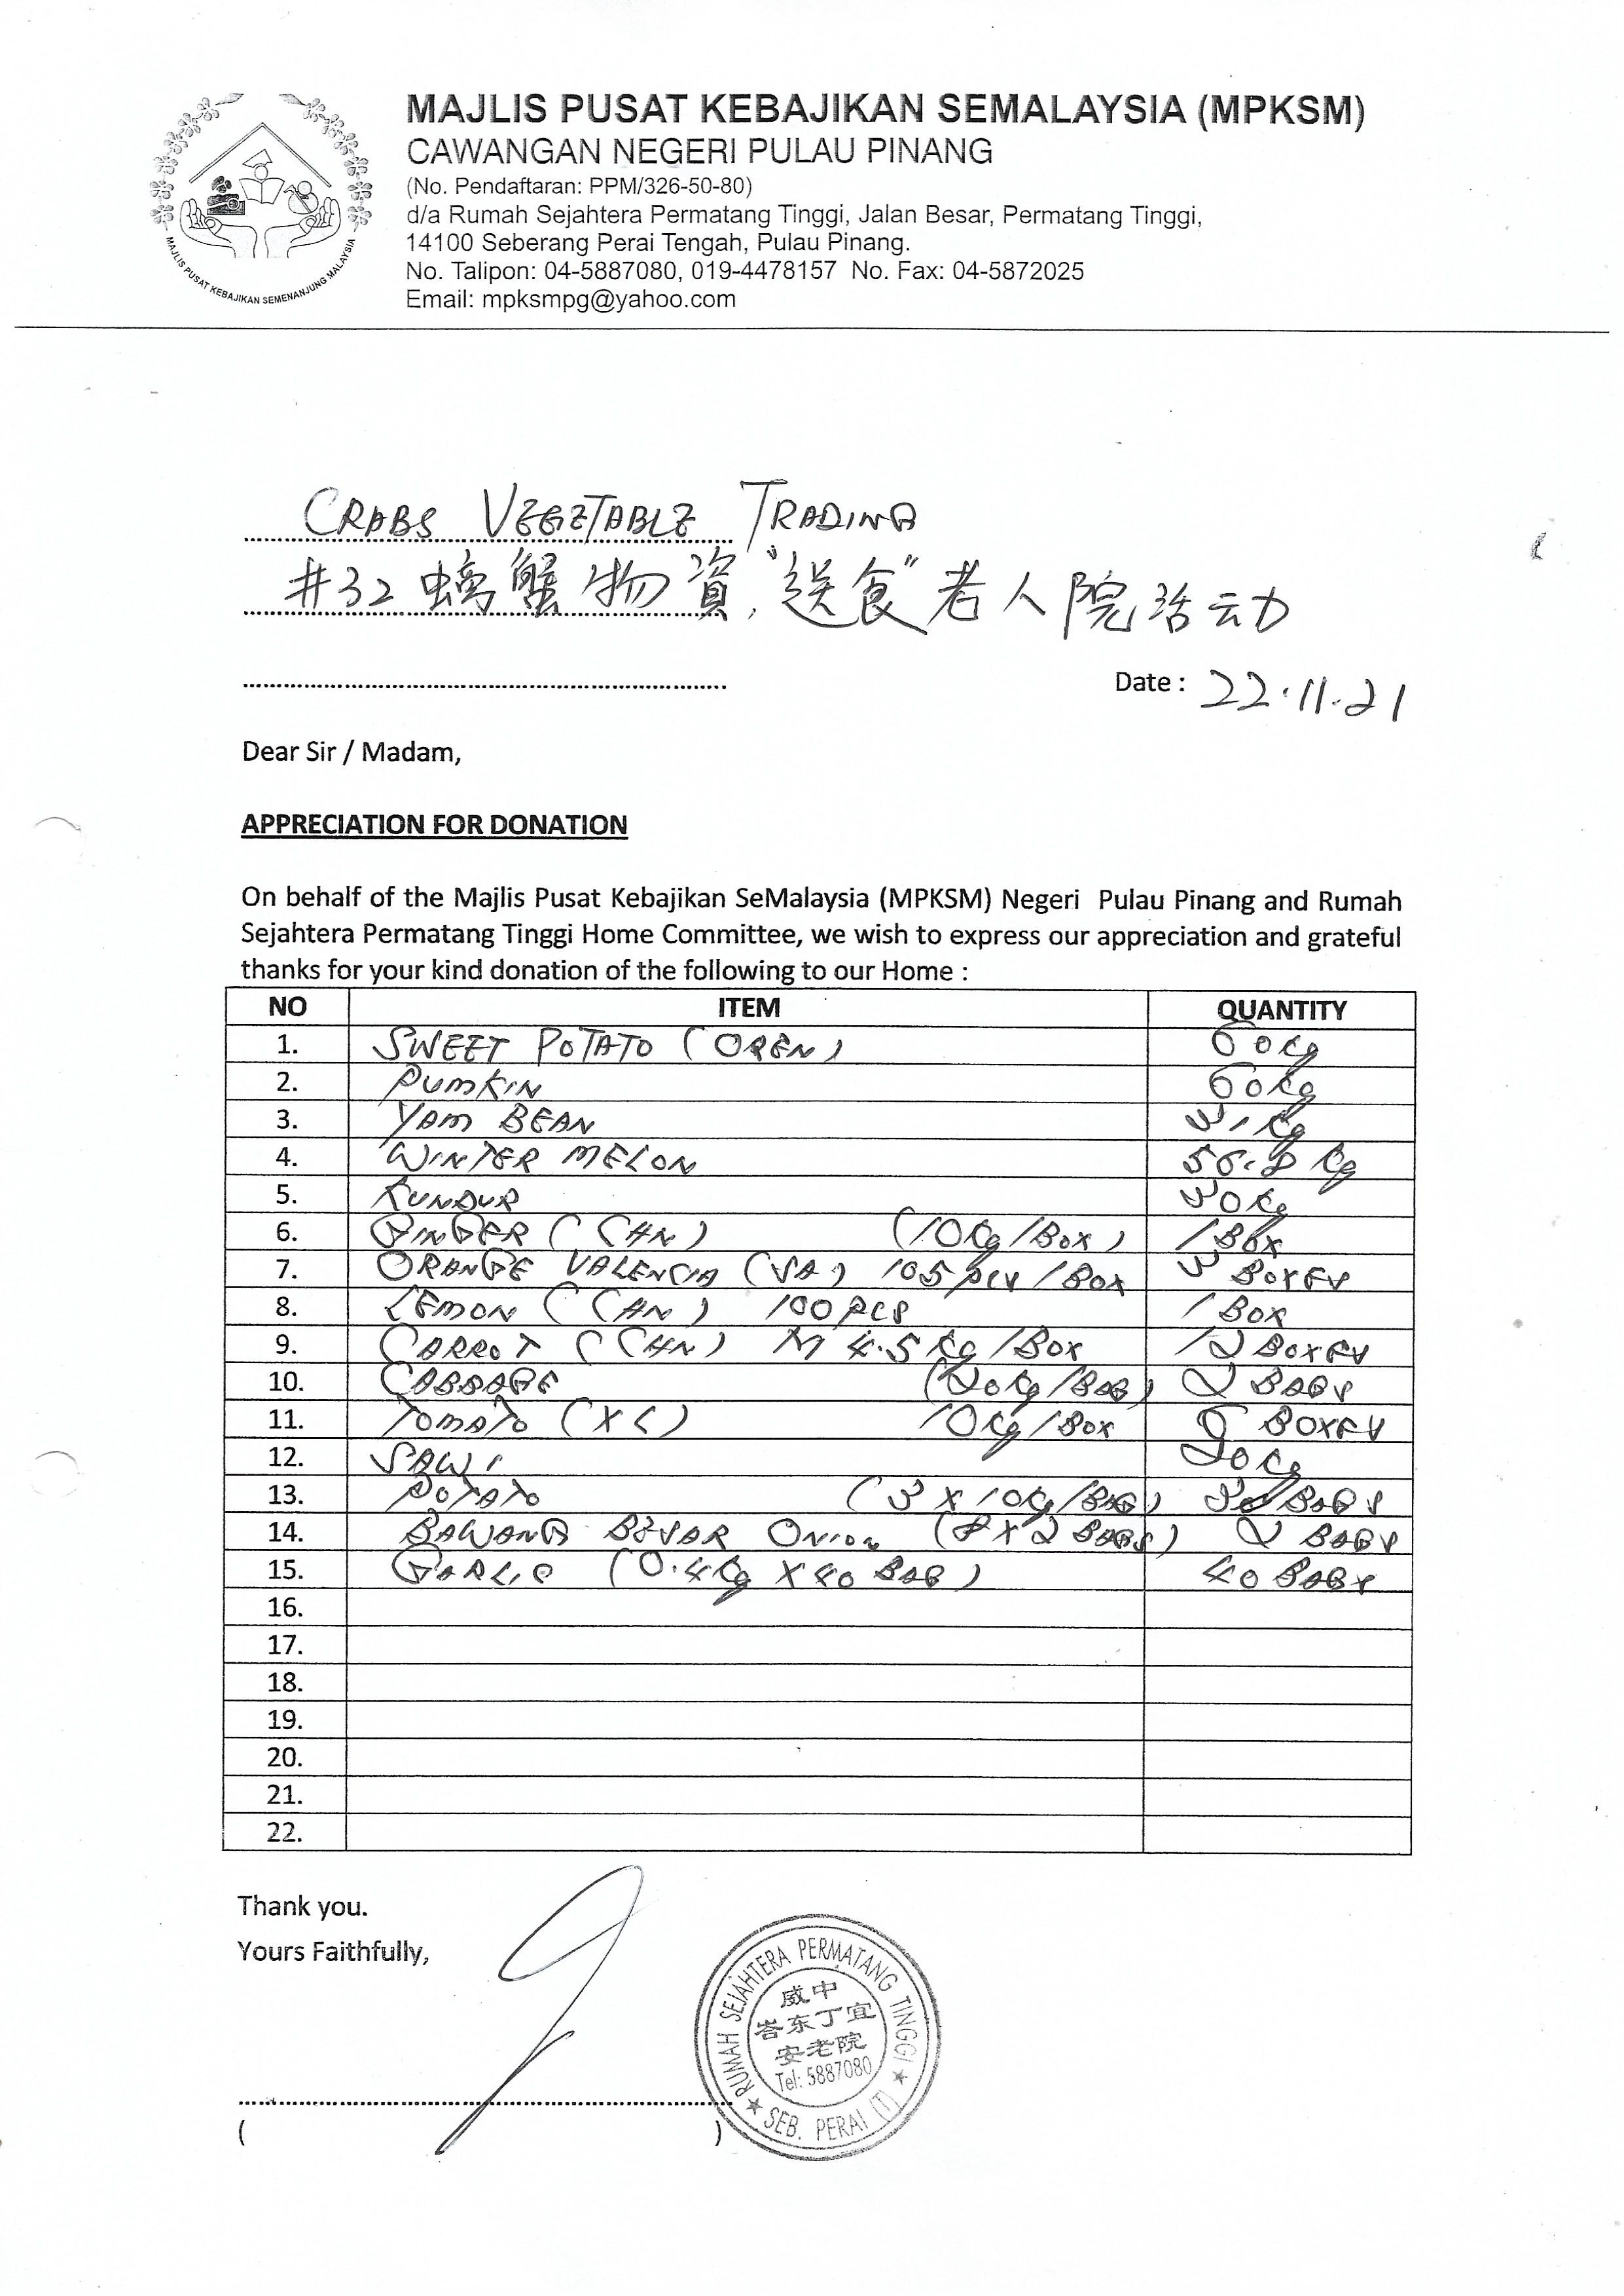 MAJLIS PUSAT KEBAJIKAN SEMALAYSIA (MPKSM)
CAWANGAN NEGERI PULAU PINANG
(No. Pendaftaran: PPM/326-50-80)
d/a Rumah Sejahtera Permatang Tinggi, Jalan Besar, Permatang Tinggi,
14100 Seberang Perai Tengah, Pulau Pinang.
No. Talipon: 04-5887080, 019-4478157 No. Fax: 04-5872025
Email: mpksmpg@yahoo.com
MAJLIS PUSAT KEBAJIKAN SEMENANJUNG MALAYSIA
CRABS VEGETABLE TRADING
#32 螃蟹物資,"送食"老人院活动
Date : 22.11.21
Dear Sir / Madam,
APPRECIATION FOR DONATION
On behalf of the Majlis Pusat Kebajikan SeMalaysia (MPKSM) Negeri Pulau Pinang and Rumah
Sejahtera Permatang Tinggi Home Committee, we wish to express our appreciation and grateful
thanks for your kind donation of the following to our Home :
NO ITEM QUANTITY
1. SWEET POTATO (OREN) 60Kg
2. PUMKIN 60Kg
3. YAM BEAN 31Kg
4. WINTER MELON 56.8 Kg
5. KUNDUR 30Kg
6. GINGER (CHN) (10Kg/BOX) 1 BOX
7. ORANGE VALENCIA (SA) 105 pcs/BOX 3 BOXES
8. LEMON 100 PCS 1 BOX
9. CARROT (CHN) M 4.5 Kg/BOX 12 BOXES
10. CABBAGE (20Kg/BAG) 2 BAGS
11. TOMATO (XL) 10Kg/BOX BOXES
12. SAWI 20Kg
13. POTATO (3 X 10Kg/BAG) BAGS
14. BAWANG BESAR ONION (8 X 2 BAGS) 2 BAGS
15. GARLIC (0.4Kg X 40 BAG) 40 BAGS
16.
17.
18.
19.
20.
21.
22.
Thank you.
Yours Faithfully,
( )
RUMAH SEJAHTERA PERMATANG TINGGI
威中
峇东丁宜
安老院
Tel: 5887080
SEB. PERAI (T)